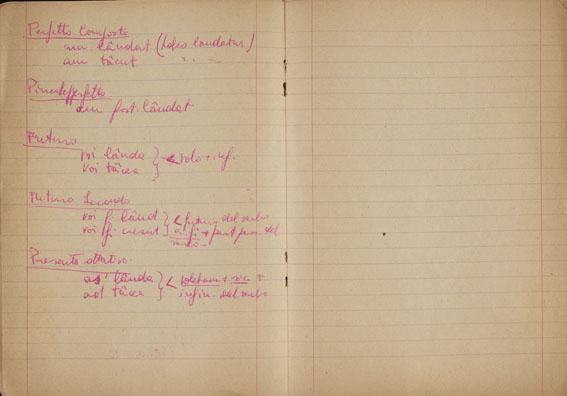 Perfetto Composto
am lâudat (habeo laudatus)
am tăcut " "
Piuccheperfetto
am fost lâudat
Futuro
voi lâuda } < volo + inf.
voi tăcea }
Futuro Secondo
voi fi lâudat } < futuro del verbo
voi fi crescut } a fi + part. pass. del
verbo
Presente ottativo
aș lâuda } < volebam + sic +
aș tăcea } infin. del verbo